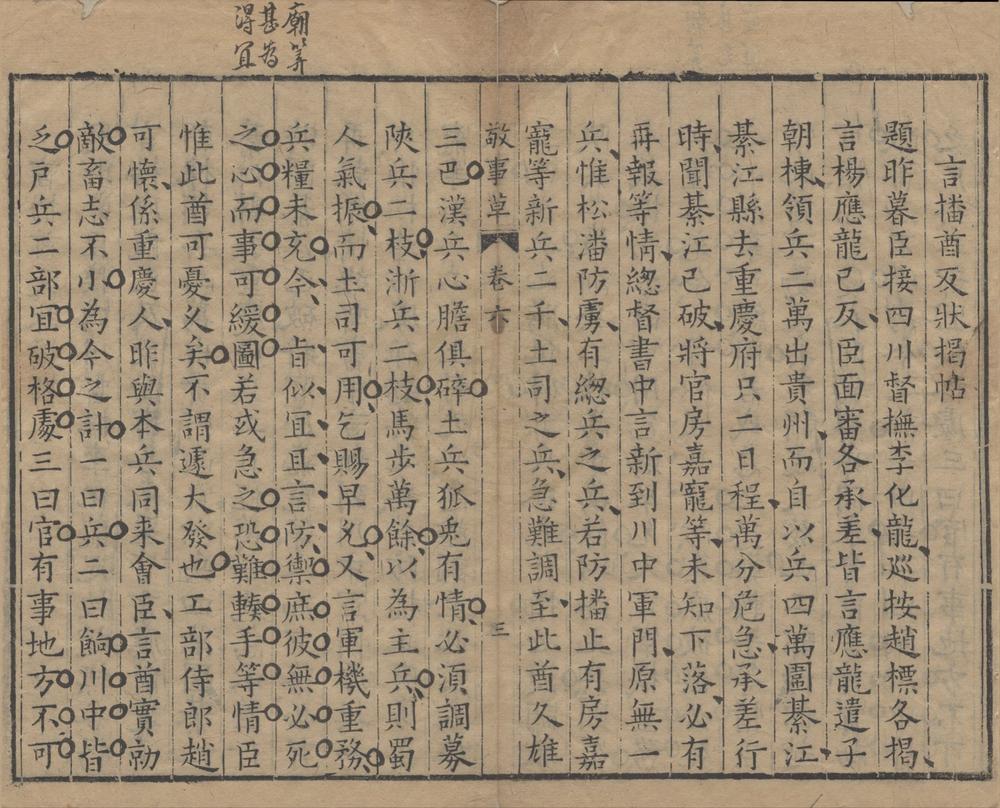 廟筭
甚為
得宜
言播酋反狀揭帖
題昨暮臣接四川督撫李化龍巡按趙標各揭
言楊應龍已反臣面審各承差皆言應龍遣子
朝棟領兵二萬出貴州而自以兵四萬圍綦江
綦江縣去重慶府只二日程萬分危急承差行
時聞綦江已破將官房嘉寵等未知下落必有
再報等情總督書中言新到川中軍門原無一
兵惟松潘防虜有總兵之兵若防播止有房嘉
寵等新兵二千土司之兵急難調至此酋久雄
敬事草 卷六 三
三巴漢兵心膽俱碎土兵狐兎有情必須調募
陝兵二枝淅兵二枝馬步萬餘以為主兵則蜀
人氣振而土司可用乞賜早兌又言軍機重務
兵糧未充今旨似宜且言防禦庶彼無必死
之心而事可緩圖若或急之恐難輳手等情臣
惟此酋可憂乆矣不謂遽大發也工部侍郎趙
可懷係重慶人昨與本兵同來會臣言酋實勍
敵畜志不小為今之計一曰兵二曰餉川中皆
乏戶兵二部宜破格處三曰官有事地方不可